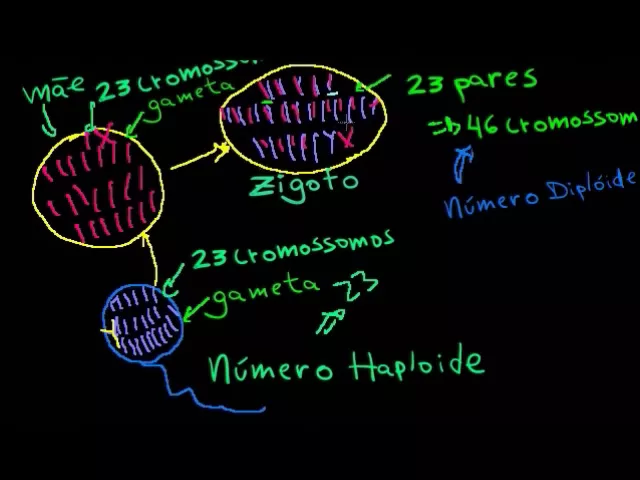 mãe
23 cromossom
gameta
23 pares
=> 46 cromossom
zigoto
Número Diplóide
23 cromossomos
gameta 23
Número Haploide
X
Y
Y X